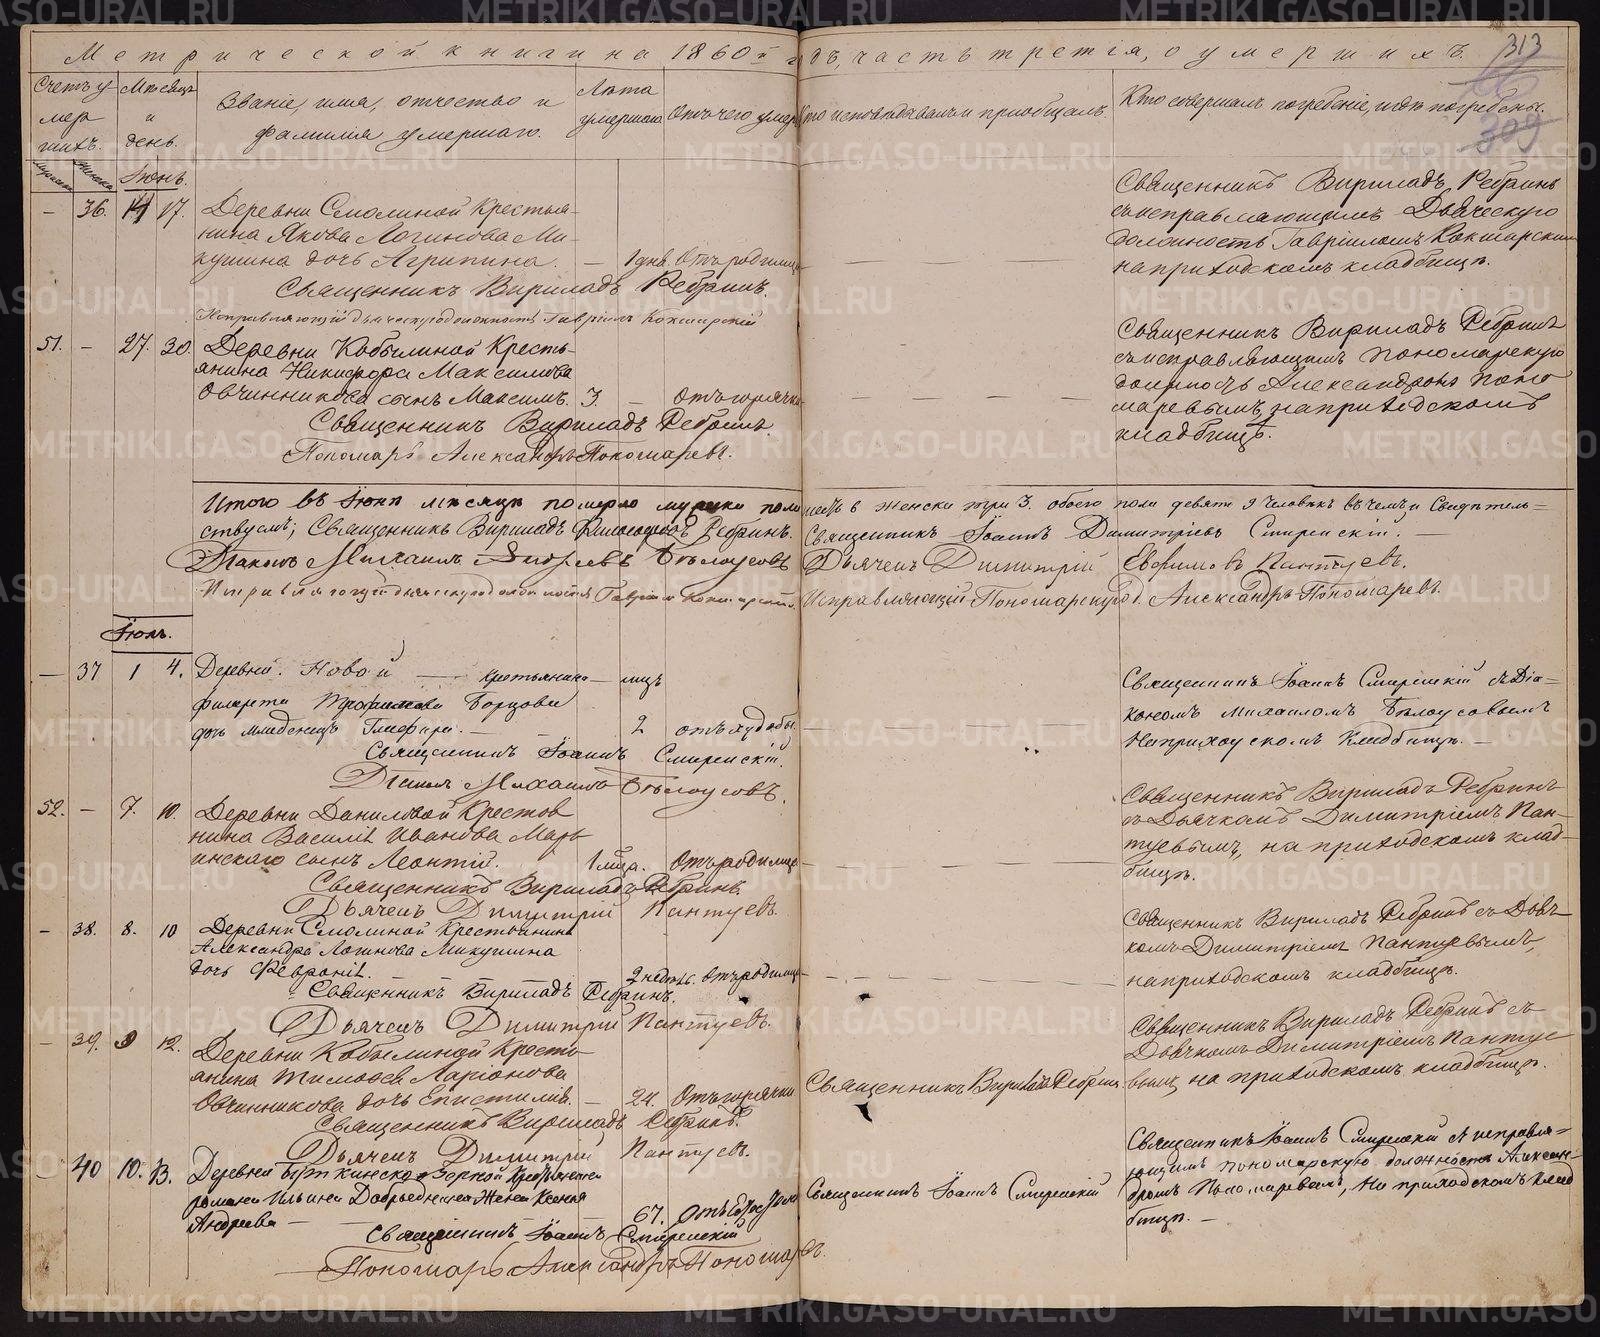 Метрической книги на 1860й годъ, часть третія, о умершихъ.
313
309
Счетъ умершихъ.
Мѣсяцъ и день.
Званіе, имя, отчество и фамилія умершаго.
Лѣта умершаго
Отъ чего умеръ
Кто исповѣдывалъ и приобщалъ.
Кто совершалъ погребеніе, и гдѣ погребены.
Іюнь.
— 36. 14 17. Деревни Смолиной Крестья-
нина Якова Логинова Ми-
кушина дочь Агрипина. — 1 дня. Отъ родимца
Священникъ Вириладъ Ребринъ.
Исправляющій дьяческую должность Гавріилъ Кокшарскій
Священникъ Вириладъ Ребринъ
съ исправляющимъ Дьяческую
должность Гавріиломъ Кокшарскимъ
на приходскомъ кладбищѣ.
51. — 27. 30. Деревни Кобылиной Кресть-
янина Никифора Максимова
Овчинникова сынъ Максимъ. 3. — Отъ горячки
Священникъ Вириладъ Ребринъ.
Пономарь Александръ Пономаревъ.
Священникъ Вириладъ Ребринъ
съ исправляющимъ пономарскую
должность Александромъ Поно
маревымъ, на приходскомъ
кладбищѣ.
Итого въ Іюнѣ мѣсяцѣ померло мужска пола шесть 6 женска три 3. обоего пола девять 9 человѣкъ въ чемъ и свидѣтель=
ствуемъ; Священникъ Вириладъ Ребринъ. Священникъ Іоаннъ Димитріевъ Смиренскій. —
Діаконъ Михаилъ Андреевъ Бѣлоусовъ Дьячекъ Димитрій Евфимовъ Пантуевъ.
Исправляющій дьяческую должность Гавріилъ Кокшарскій. Исправляющій Пономарскую д. Александръ Пономаревъ.
Іюль.
— 37 1 4. Деревни Новой — крестьянина
Филарета Трофимова Борцова
дочь младенецъ Глафира. — 2 мцъ отъ худобы.
Священникъ Іоаннъ Смиренскій.
Діаконъ Михаилъ Бѣлоусовъ.
Священникъ Іоаннъ Смиренскій съ Діа=
кономъ Михаиломъ Бѣлоусовымъ
на приходскомъ кладбищѣ. —
52. — 7. 10. Деревни Даниловой Крестья
нина Василія Иванова Марь
инскаго сынъ Леонтій. 1 мца. Отъ родимца
Священникъ Вириладъ Ребринъ.
Дьячекъ Димитрій Пантуевъ.
Священникъ Вириладъ Ребринъ
съ Дьячкомъ Димитріемъ Пан-
туевымъ, на приходскомъ клад-
бищѣ.
— 38. 8. 10 Деревни Смолиной Крестьянина
Александра Логинова Микушина
дочь Февронія. 2 недѣль. Отъ родимца
Священникъ Вириладъ Ребринъ.
Дьячекъ Димитрій Пантуевъ.
Священникъ Вириладъ Ребринъ съ Дьяч
комъ Димитріемъ Пантуевымъ,
на приходскомъ кладбищѣ.
— 39. 9 12. Деревни Кобылиной Кресть-
янина Тимофея Ларіонова
Овчинникова дочь Епистилія. — 24. Отъ горячки
Священникъ Вириладъ Ребринъ.
Дьячекъ Димитрій Пантуевъ.
Священникъ Вириладъ Ребринъ.
Священникъ Вириладъ Ребринъ съ
Дьячкомъ Димитріемъ Пантуе
вымъ, на приходскомъ кладбищѣ.
— 40 10. 13. Деревни Крестьянина
Романа Ильина жена Ксенія
Андреева — 67.
Священникъ Іоаннъ Смиренскій
Пономарь Александръ Пономаревъ.
Священникъ Іоаннъ Смиренскій
Священникъ Іоаннъ Смиренскій съ исправля=
ющимъ пономарскую должность Алексан-
дромъ Пономаревымъ, на приходскомъ клад
бищѣ. —
METRIKI.GASO-URAL.RU